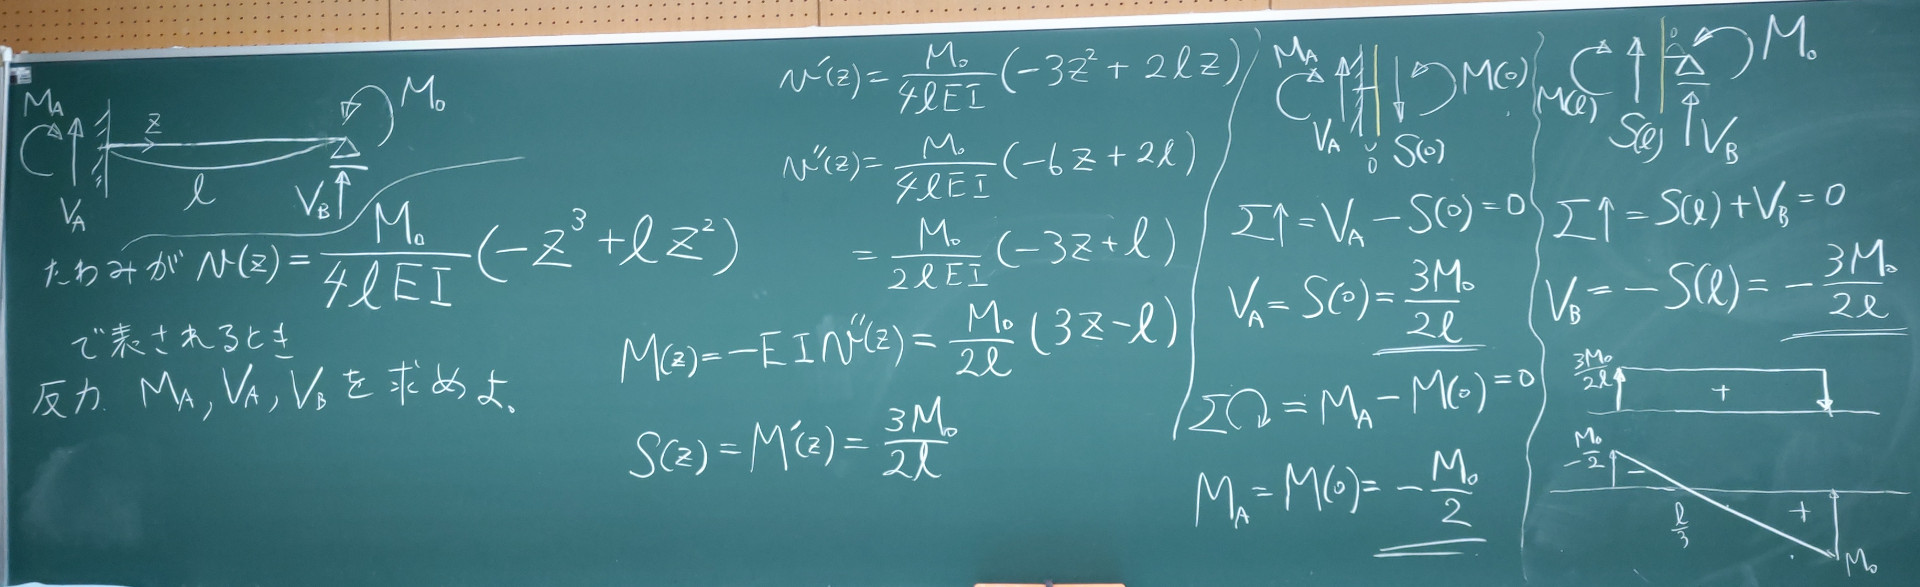 M_A
V_A
z
l
V_B
M₀
たわみが v(z) = M₀/4lEI (-z³ + lz²)
で表されるとき
反力 M_A, V_A, V_B を求めよ。
v'(z) = M₀/4lEI (-3z² + 2lz)
v''(z) = M₀/4lEI (-6z + 2l)
= M₀/2lEI (-3z + l)
M(z) = -EIv''(z) = M₀/2l (3z - l)
S(z) = M'(z) = 3M₀/2l
M_A
V_A
0
S(0)
M(0)
Σ↑ = V_A - S(0) = 0
V_A = S(0) = 3M₀/2l
Σ↻ = M_A - M(0) = 0
M_A = M(0) = -M₀/2
M(l)
S(l)
V_B
M₀
Σ↑ = S(l) + V_B = 0
V_B = -S(l) = -3M₀/2l
3M₀/2l
+
-M₀/2
-
l/3
+
M₀